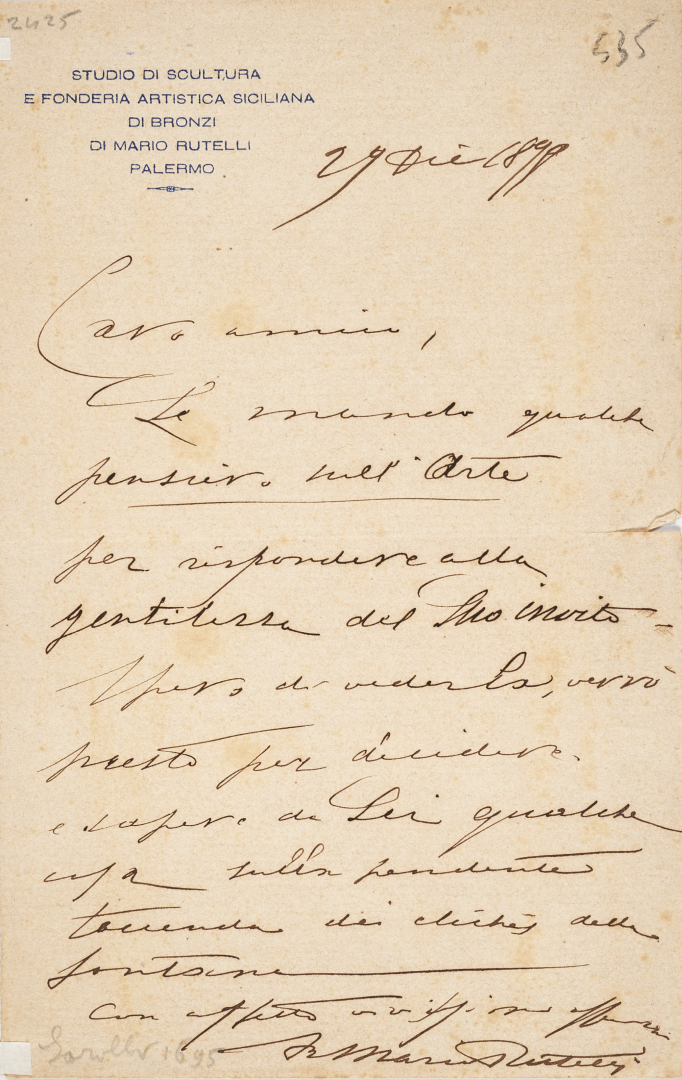 2425
535
STUDIO DI SCULTURA
E FONDERIA ARTISTICA SICILIANA
DI BRONZI
DI MARIO RUTELLI
PALERMO
29 Dic 1898
Caro amico,
Le mando qualche
pensiero sull'Arte
per rispondere alla
gentilezza del Suo invito =
Spero di vederLa, verrò
presto per decidere
e sapere da Lei qualche
cosa sulla pendente
faccenda dei clichés della
fontana
con affetto vivissimo
Mario Rutelli
1895